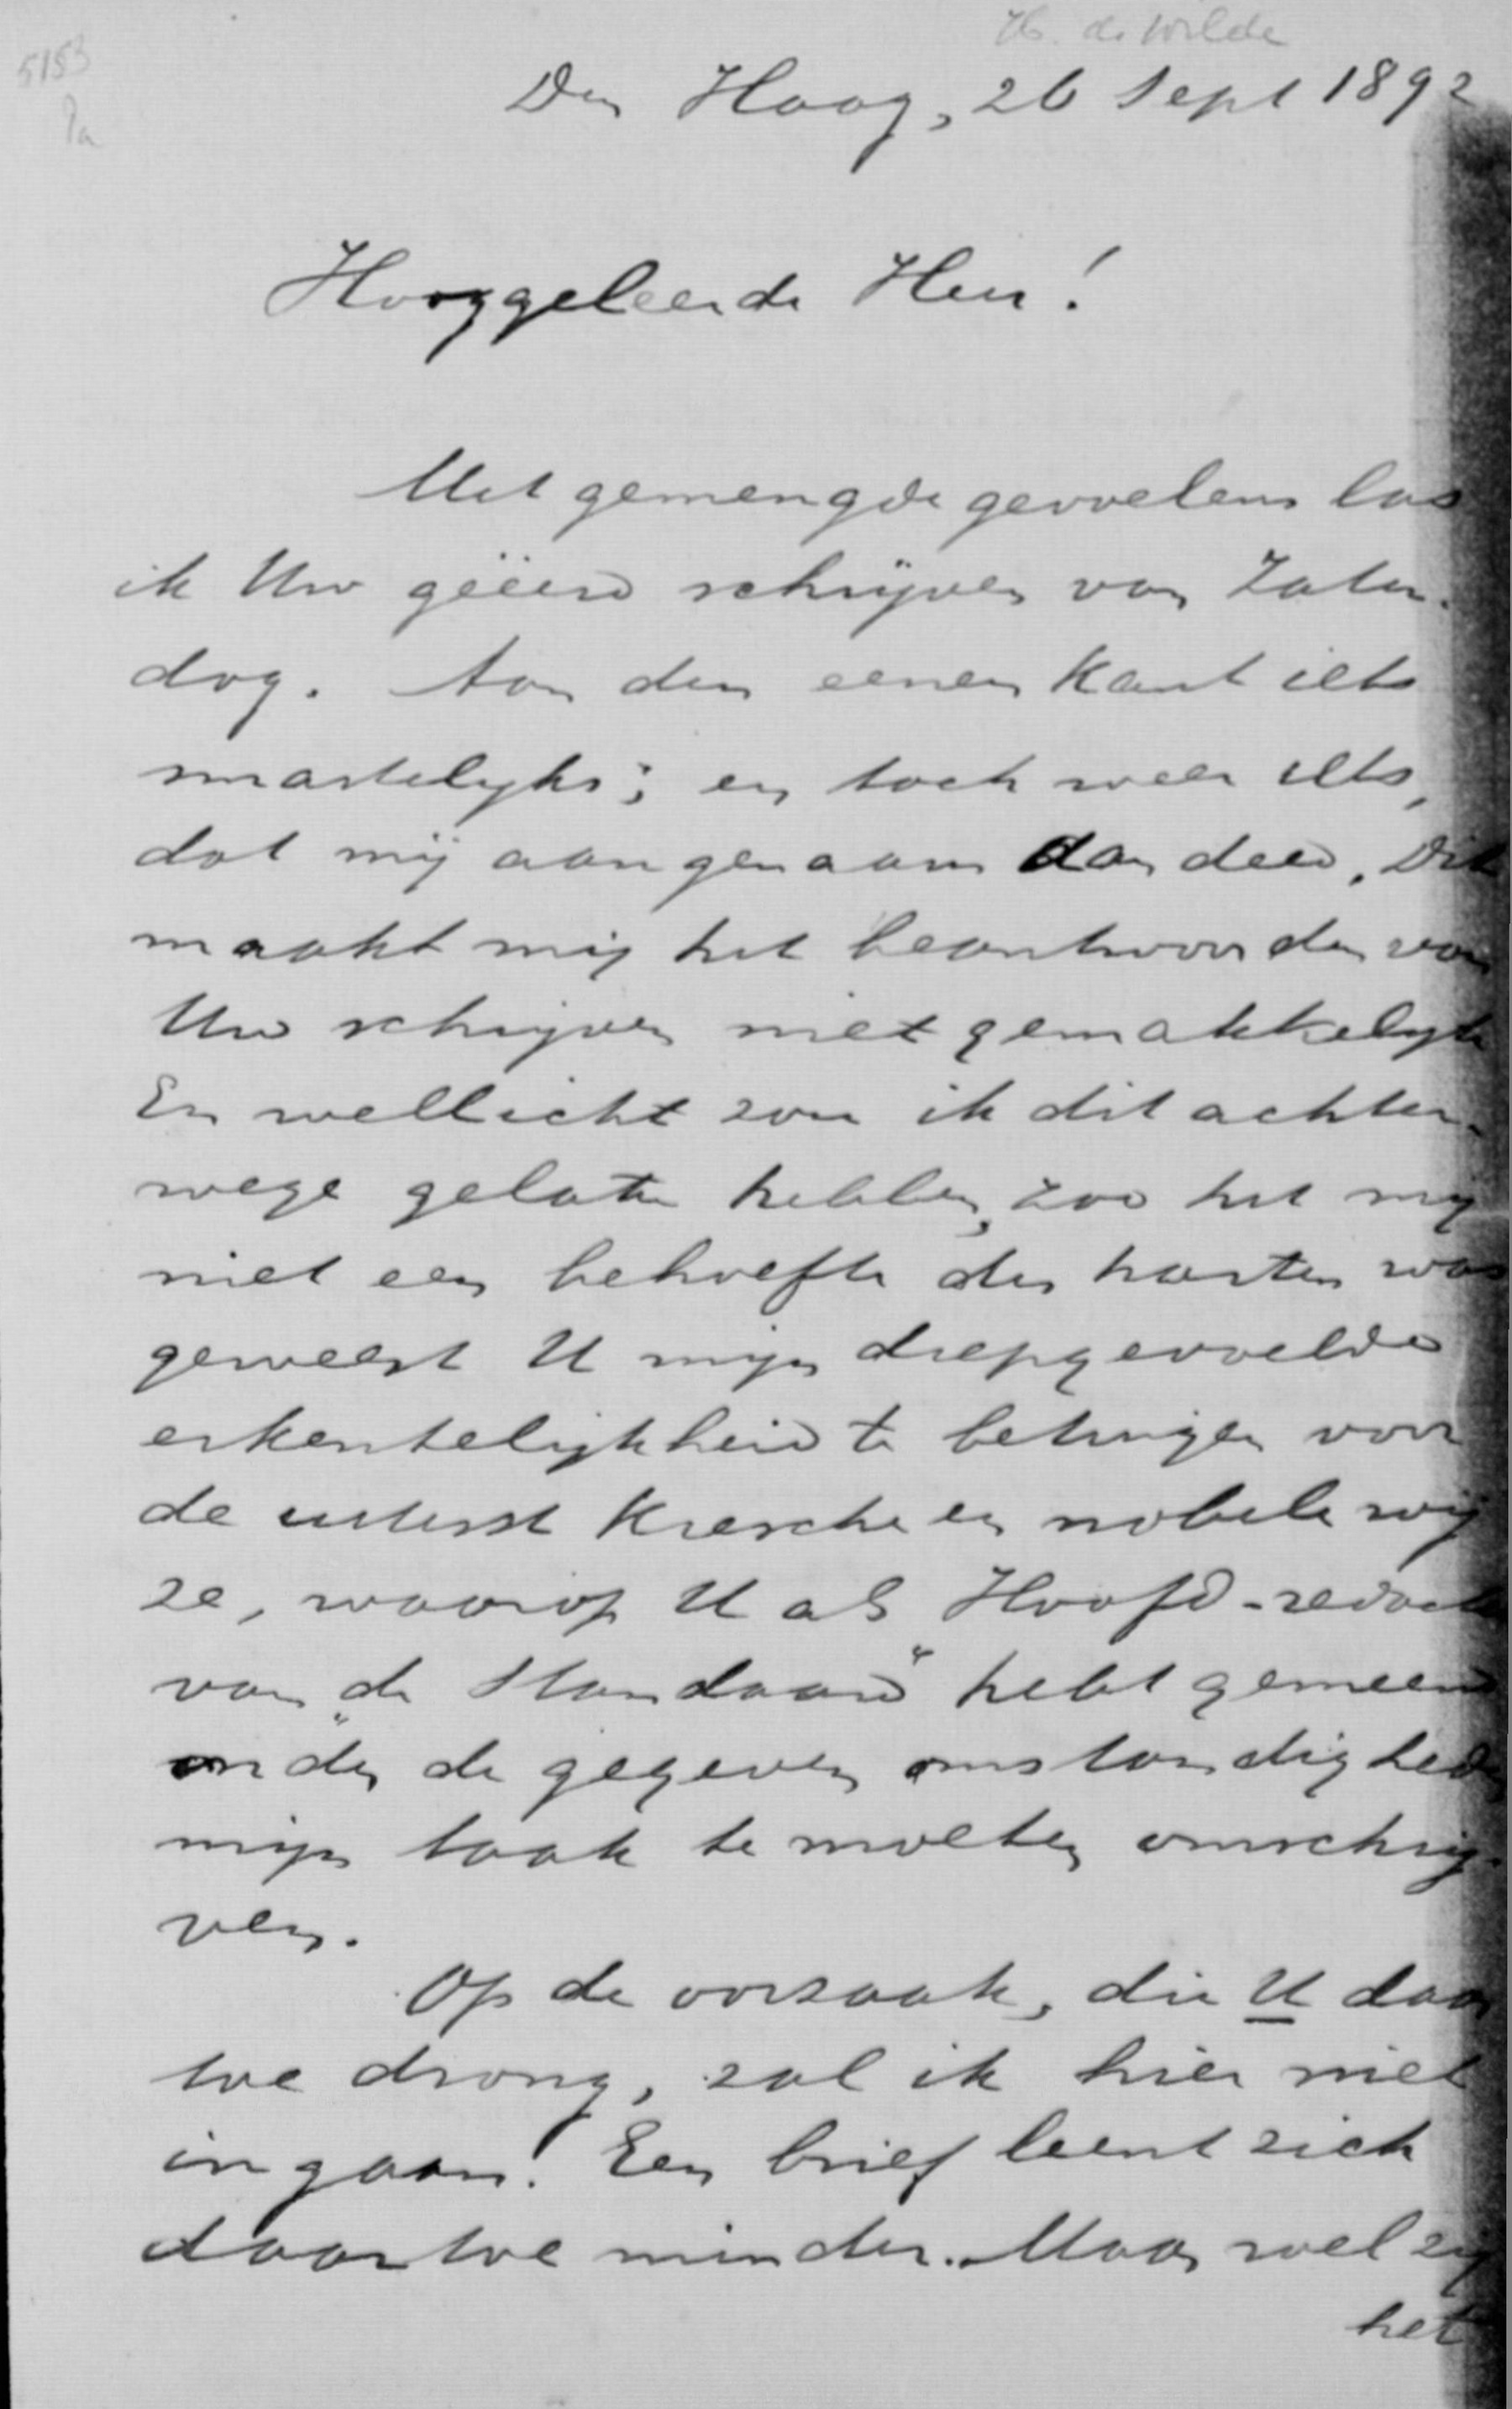 5153
Pa
Hs. de Wilde
Den Haag, 26 Sept 1892
Hooggeleerde Heer!
Met gemengde gevoelens las
ik Uw geëerd schrijven van Zater-
dag. Aan den eenen kant iets
smartelijks; en toch weer iets,
dat mij aangenaam aandeed. Dit
maakt mij het beantwoorden van
Uw schrijven niet gemakkelijk
En wellicht zou ik dit achter-
wege gelaten hebben, zoo het mij
niet een behoefte des harten was
geweest U mijn diepgevoelde
erkentelijkheid te betuigen voor
de uiterst kiesche en nobele wij
ze, waarop U als Hoofd-redacteur
van „de Standaard" hebt gemeend
onder de gegeven omstandigheden
mijn taak te moeten omschrij-
ven.
Op de oorzaak, die U daar
toe drong, zal ik hier niet
ingaan! Een brief leent zich
daartoe minder. Maar wel zij
het